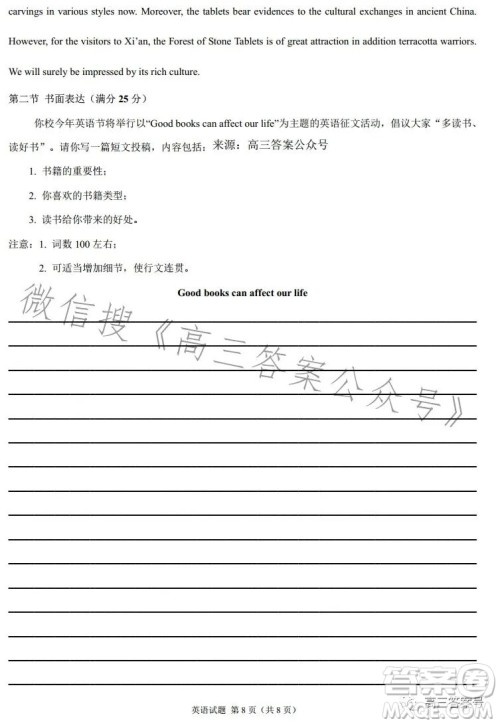 carvings in various styles now. Moreover, the tablets bear evidences to the cultural exchanges in ancient China.
However, for the visitors to Xi’an, the Forest of Stone Tablets is of great attraction in addition terracotta warriors.
We will surely be impressed by its rich culture.
第二节 书面表达（满分 25 分）
你校今年英语节将举行以“Good books can affect our life”为主题的英语征文活动，倡议大家“多读书、
读好书”。请你写一篇短文投稿，内容包括：来源：高三答案公众号
1. 书籍的重要性；
2. 你喜欢的书籍类型；
3. 读书给你带来的好处。
注意：1. 词数 100 左右；
2. 可适当增加细节，使行文连贯。
Good books can affect our life
微信搜《高三答案公众号》
答案圈
MXQE.COM
高三答案号
英语试题 第 8 页（共 8 页）